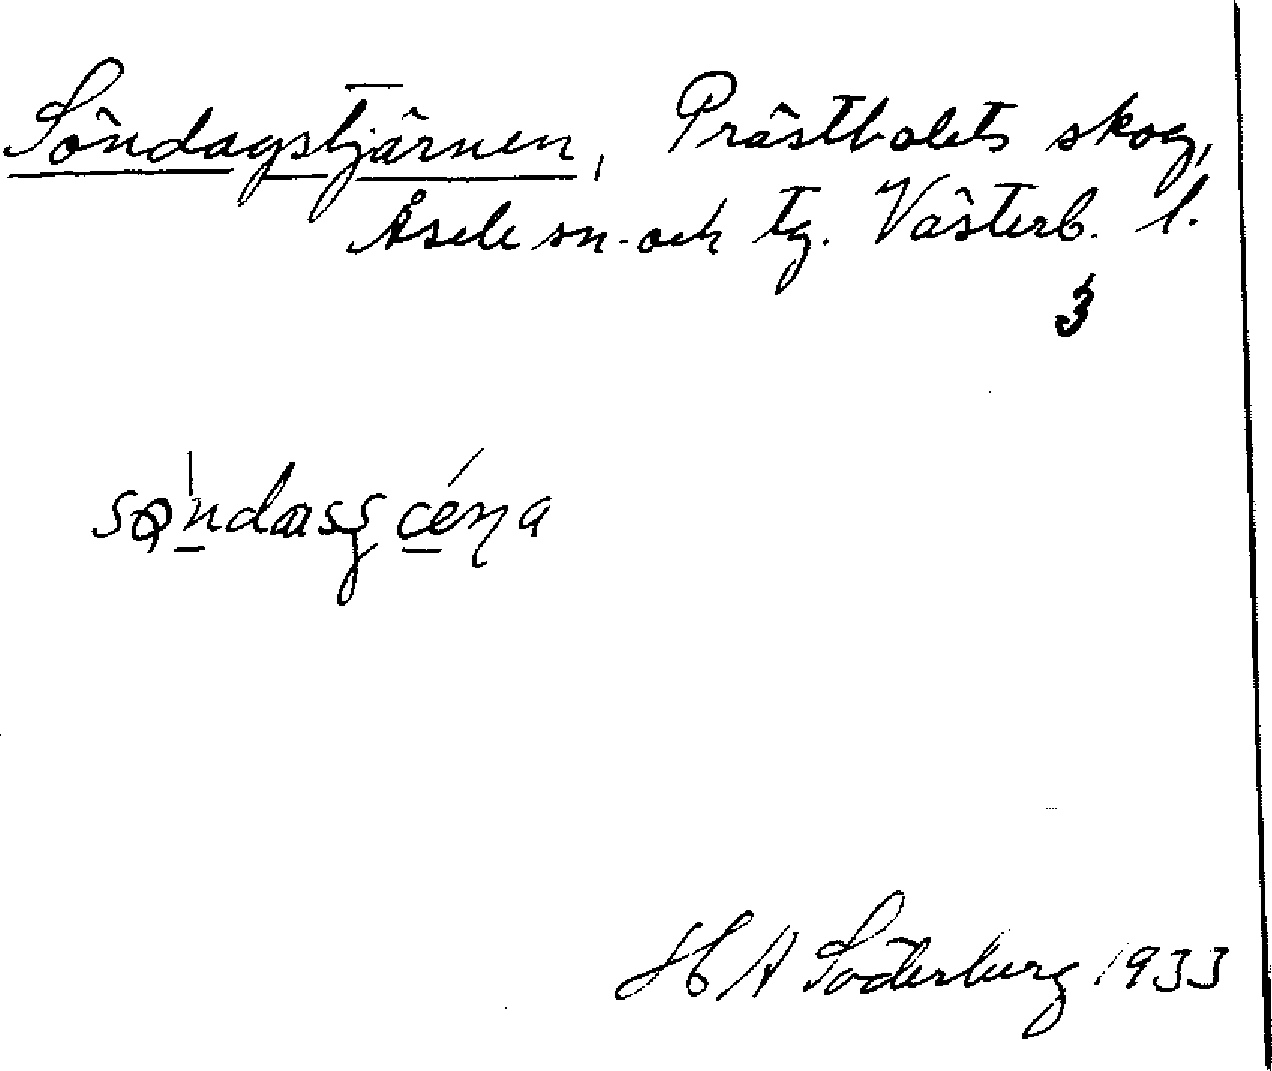 Söndagstjärnen, Prästbolets skog,
Åsele sn. och tg. Västerb. l.
3
H A Söderberg 1933